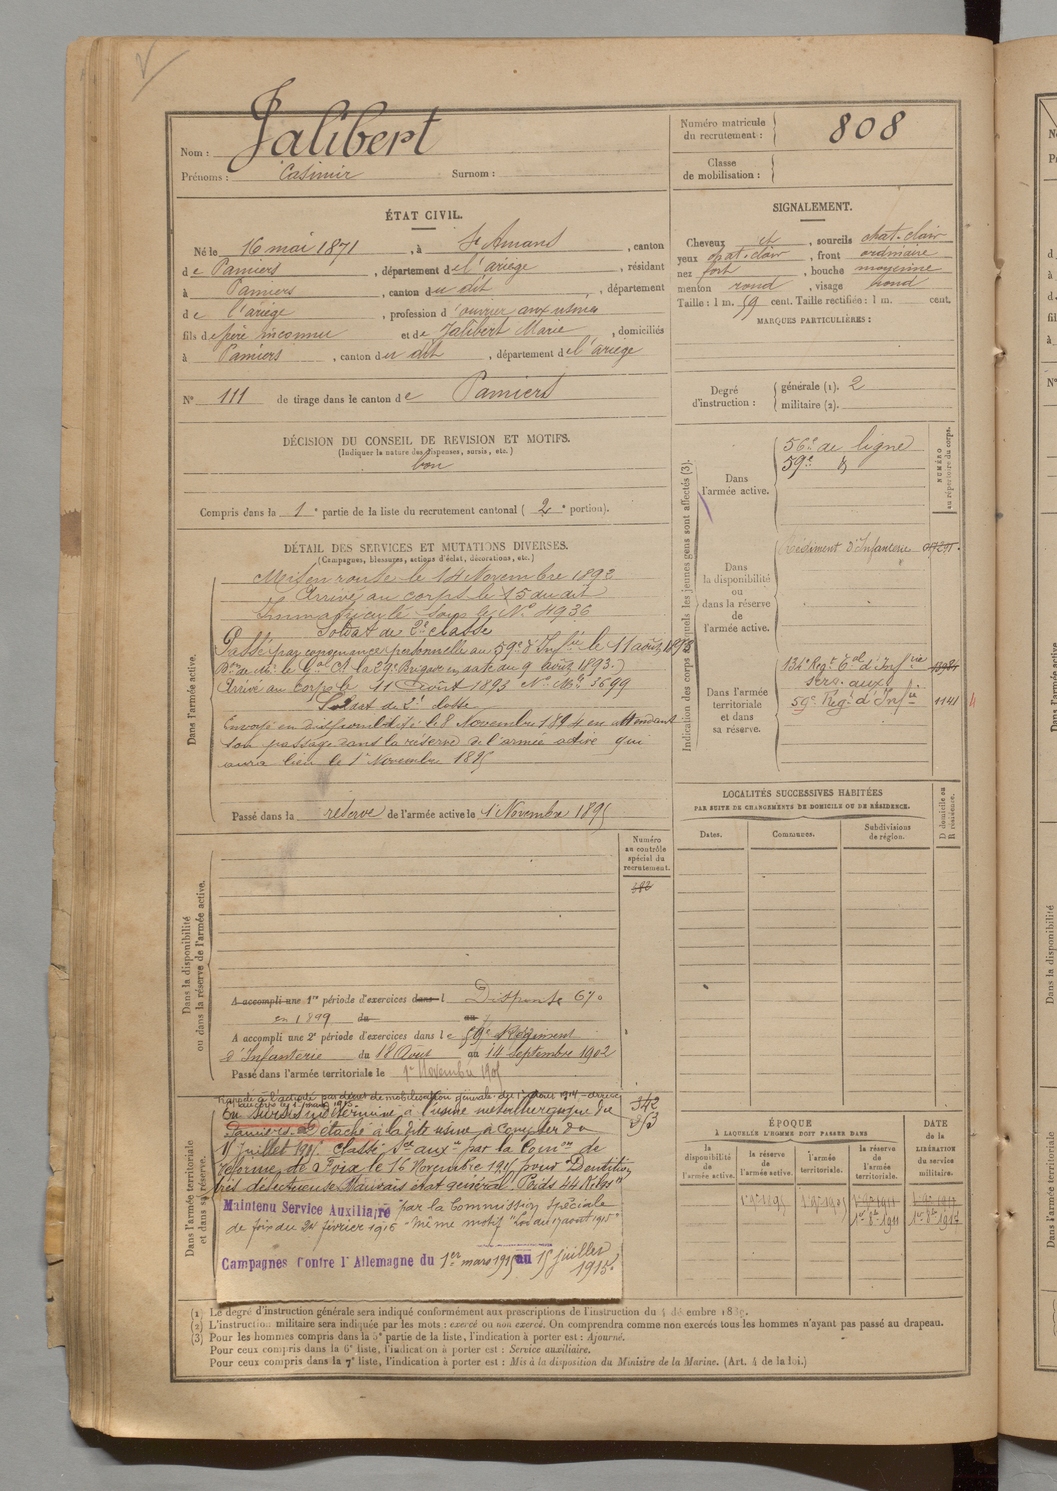 Nom : Jalibert
Prénoms : Casimir Surnom :
Numéro matricule du recrutement : 808
Classe de mobilisation :
ÉTAT CIVIL.
Né le 16 mai 1871, à St Amans, canton
de Pamiers, département de l'ariège, résidant
à Pamiers, canton du dit, département
de l'ariège, profession d'ouvrier aux usines
fils de père inconnu et de Jalibert Marie, domiciliés
à Pamiers, canton du dit, département de l'ariège
N° 111 de tirage dans le canton de Pamiers
SIGNALEMENT.
Cheveux et, sourcils chat. clair
yeux chat. clair, front ordinaire
nez fort, bouche moyenne
menton rond, visage rond
Taille : 1 m. 59 cent. Taille rectifiée : 1 m. cent.
MARQUES PARTICULIÈRES :
Degré d'instruction : générale (1). 2
militaire (2).
DÉCISION DU CONSEIL DE REVISION ET MOTIFS.
(Indiquer la nature des dispenses, sursis, etc.)
bon
Compris dans la 1e partie de la liste du recrutement cantonal ( 2e portion).
DÉTAIL DES SERVICES ET MUTATIONS DIVERSES.
(Campagnes, blessures, actions d'éclat, décorations, etc.)
Dans l'armée active.
Mis en route le 14 Novembre 1892
Arrivé au corps le 15 du dit
Immatriculé sous le N° 4936
Soldat de 2e classe
Passé par convenance personnelle au 59e d'Infie le 11 août 1893
Arrivé au corps le 11 Août 1893 N° Mle 3699
Soldat de 2e classe
Envoyé en disponibilité le 8 Novembre 1894 en attendant
son passage dans la réserve de l'armée active qui
aura lieu le 1er Novembre 1895
Passé dans la réserve de l'armée active le 1 Novembre 1895
Indication des corps auxquels les jeunes gens sont affectés (3).
NUMÉRO au répertoire du corps.
Dans l'armée active.
56e de ligne
59e
Dans la disponibilité ou dans la réserve de l'armée active.
Régiment d'Infanterie
Dans l'armée territoriale et dans sa réserve.
134e Regt Tal d'Infie
serv. aux.
59e Regt d'Infie 1141
LOCALITÉS SUCCESSIVES HABITÉES
PAR SUITE DE CHANGEMENTS DE DOMICILE OU DE RÉSIDENCE.
Dates. Communes. Subdivisions de région. D domicile ou R résidence.
Numéro au contrôle spécial du recrutement.
Dans la disponibilité ou dans la réserve de l'armée active.
A accompli une 1re période d'exercices dans l Dispensé
en 1899 du au
A accompli une 2e période d'exercices dans le 59e Régiment
d'Infanterie du 18 Août au 14 septembre 1902
Passé dans l'armée territoriale le 1er Novembre 1905
Dans l'armée territoriale et dans sa réserve.
Rappelé à l'activité par décret de mobilisation générale du 1er Aout 1914 - arrivé
au corps le 1 mars 1915
En sursis indéterminé à l'usine métallurgique de
Pamiers. Détaché à la dite usine à compter du
15 Juillet 1915. Classé Sce auxre par la Comon de
réforme de Foix le 16 Novembre 1915 pour Dentition
très défectueuse Mauvais état général. Poids 44 Kilos
Maintenu Service Auxiliaire par la Commission spéciale
de foix du 24 février 1916 "Même motif" "Loi du 17 août 1915"
Campagnes Contre l'Allemagne du 1er mars 1915 au 15 juillet 1915.
ÉPOQUE
À LAQUELLE L'HOMME DOIT PASSER DANS
la disponibilité de l'armée active. la réserve de l'armée active. l'armée territoriale. la réserve de l'armée territoriale.
DATE de la LIBÉRATION du service militaire.
(1) Le degré d'instruction générale sera indiqué conformément aux prescriptions de l'instruction du 4 décembre 1889.
(2) L'instruction militaire sera indiquée par les mots : exercé ou non exercé. On comprendra comme non exercés tous les hommes n'ayant pas passé au drapeau.
(3) Pour les hommes compris dans la 5e partie de la liste, l'indication à porter est : Ajourné.
Pour ceux compris dans la 6e liste, l'indication à porter est : Service auxiliaire.
Pour ceux compris dans la 7e liste, l'indication à porter est : Mis à la disposition du Ministre de la Marine. (Art. 4 de la loi.)